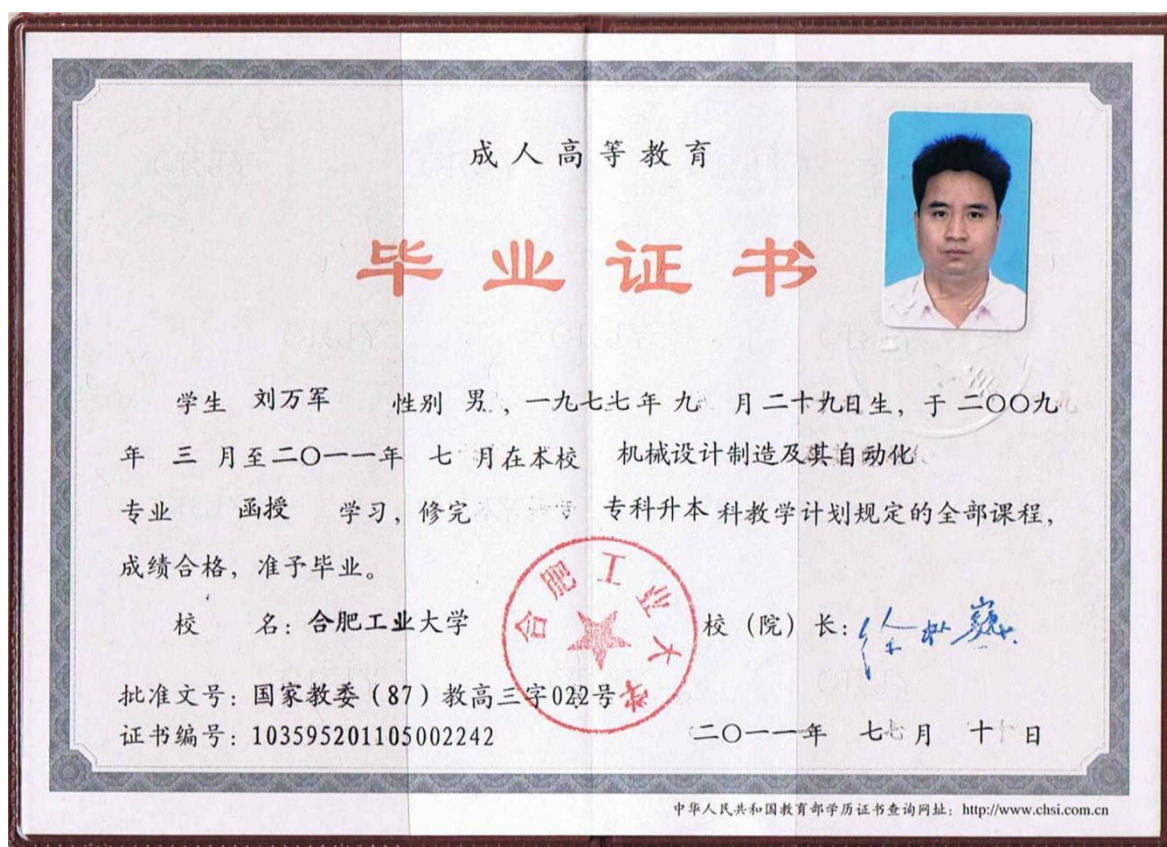 成人高等教育
毕业证书
学生 刘万军 性别 男，一九七七年九 月二十九日生，于二〇〇九
年 三 月至二〇一一年 七 月在本校 机械设计制造及其自动化
专业 函授 学习，修完 专科升本 科教学计划规定的全部课程，
成绩合格，准予毕业。
校 名：合肥工业大学
校（院）长：徐枞巍
合肥工业大学
批准文号：国家教委（87）教高三字022号
证书编号：103595201105002242
二〇一一年 七 月 十 日
中华人民共和国教育部学历证书查询网址：http://www.chsi.com.cn